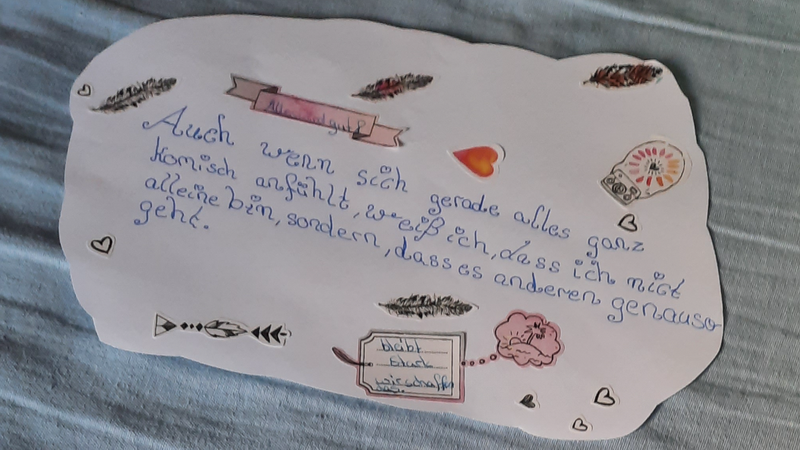 Alles wird gut!
Auch wenn sich gerade alles ganz
komisch anfühlt, weiß ich, dass ich nict
alleine bin, sondern, dass es anderen genauso
geht.
bleibt
stark
wir schaffen
das.